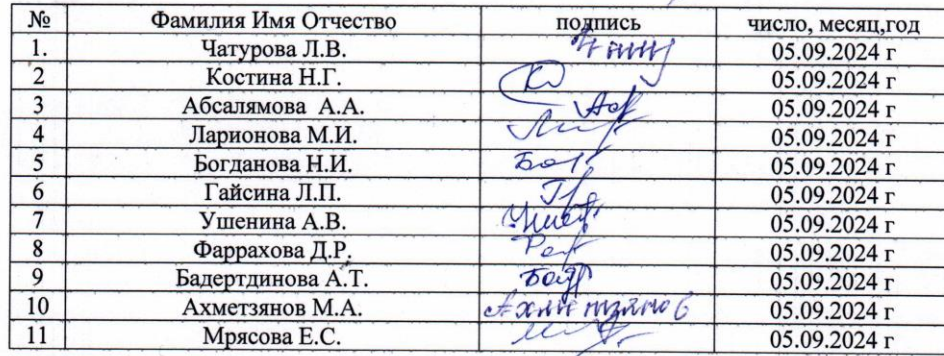 № Фамилия Имя Отчество подпись число, месяц,год
1. Чатурова Л.В. 05.09.2024 г
2 Костина Н.Г. 05.09.2024 г
3 Абсалямова А.А. 05.09.2024 г
4 Ларионова М.И. 05.09.2024 г
5 Богданова Н.И. 05.09.2024 г
6 Гайсина Л.П. 05.09.2024 г
7 Ушенина А.В. 05.09.2024 г
8 Фаррахова Д.Р. 05.09.2024 г
9 Бадертдинова А.Т. 05.09.2024 г
10 Ахметзянов М.А. Ахметзянов 05.09.2024 г
11 Мрясова Е.С. 05.09.2024 г